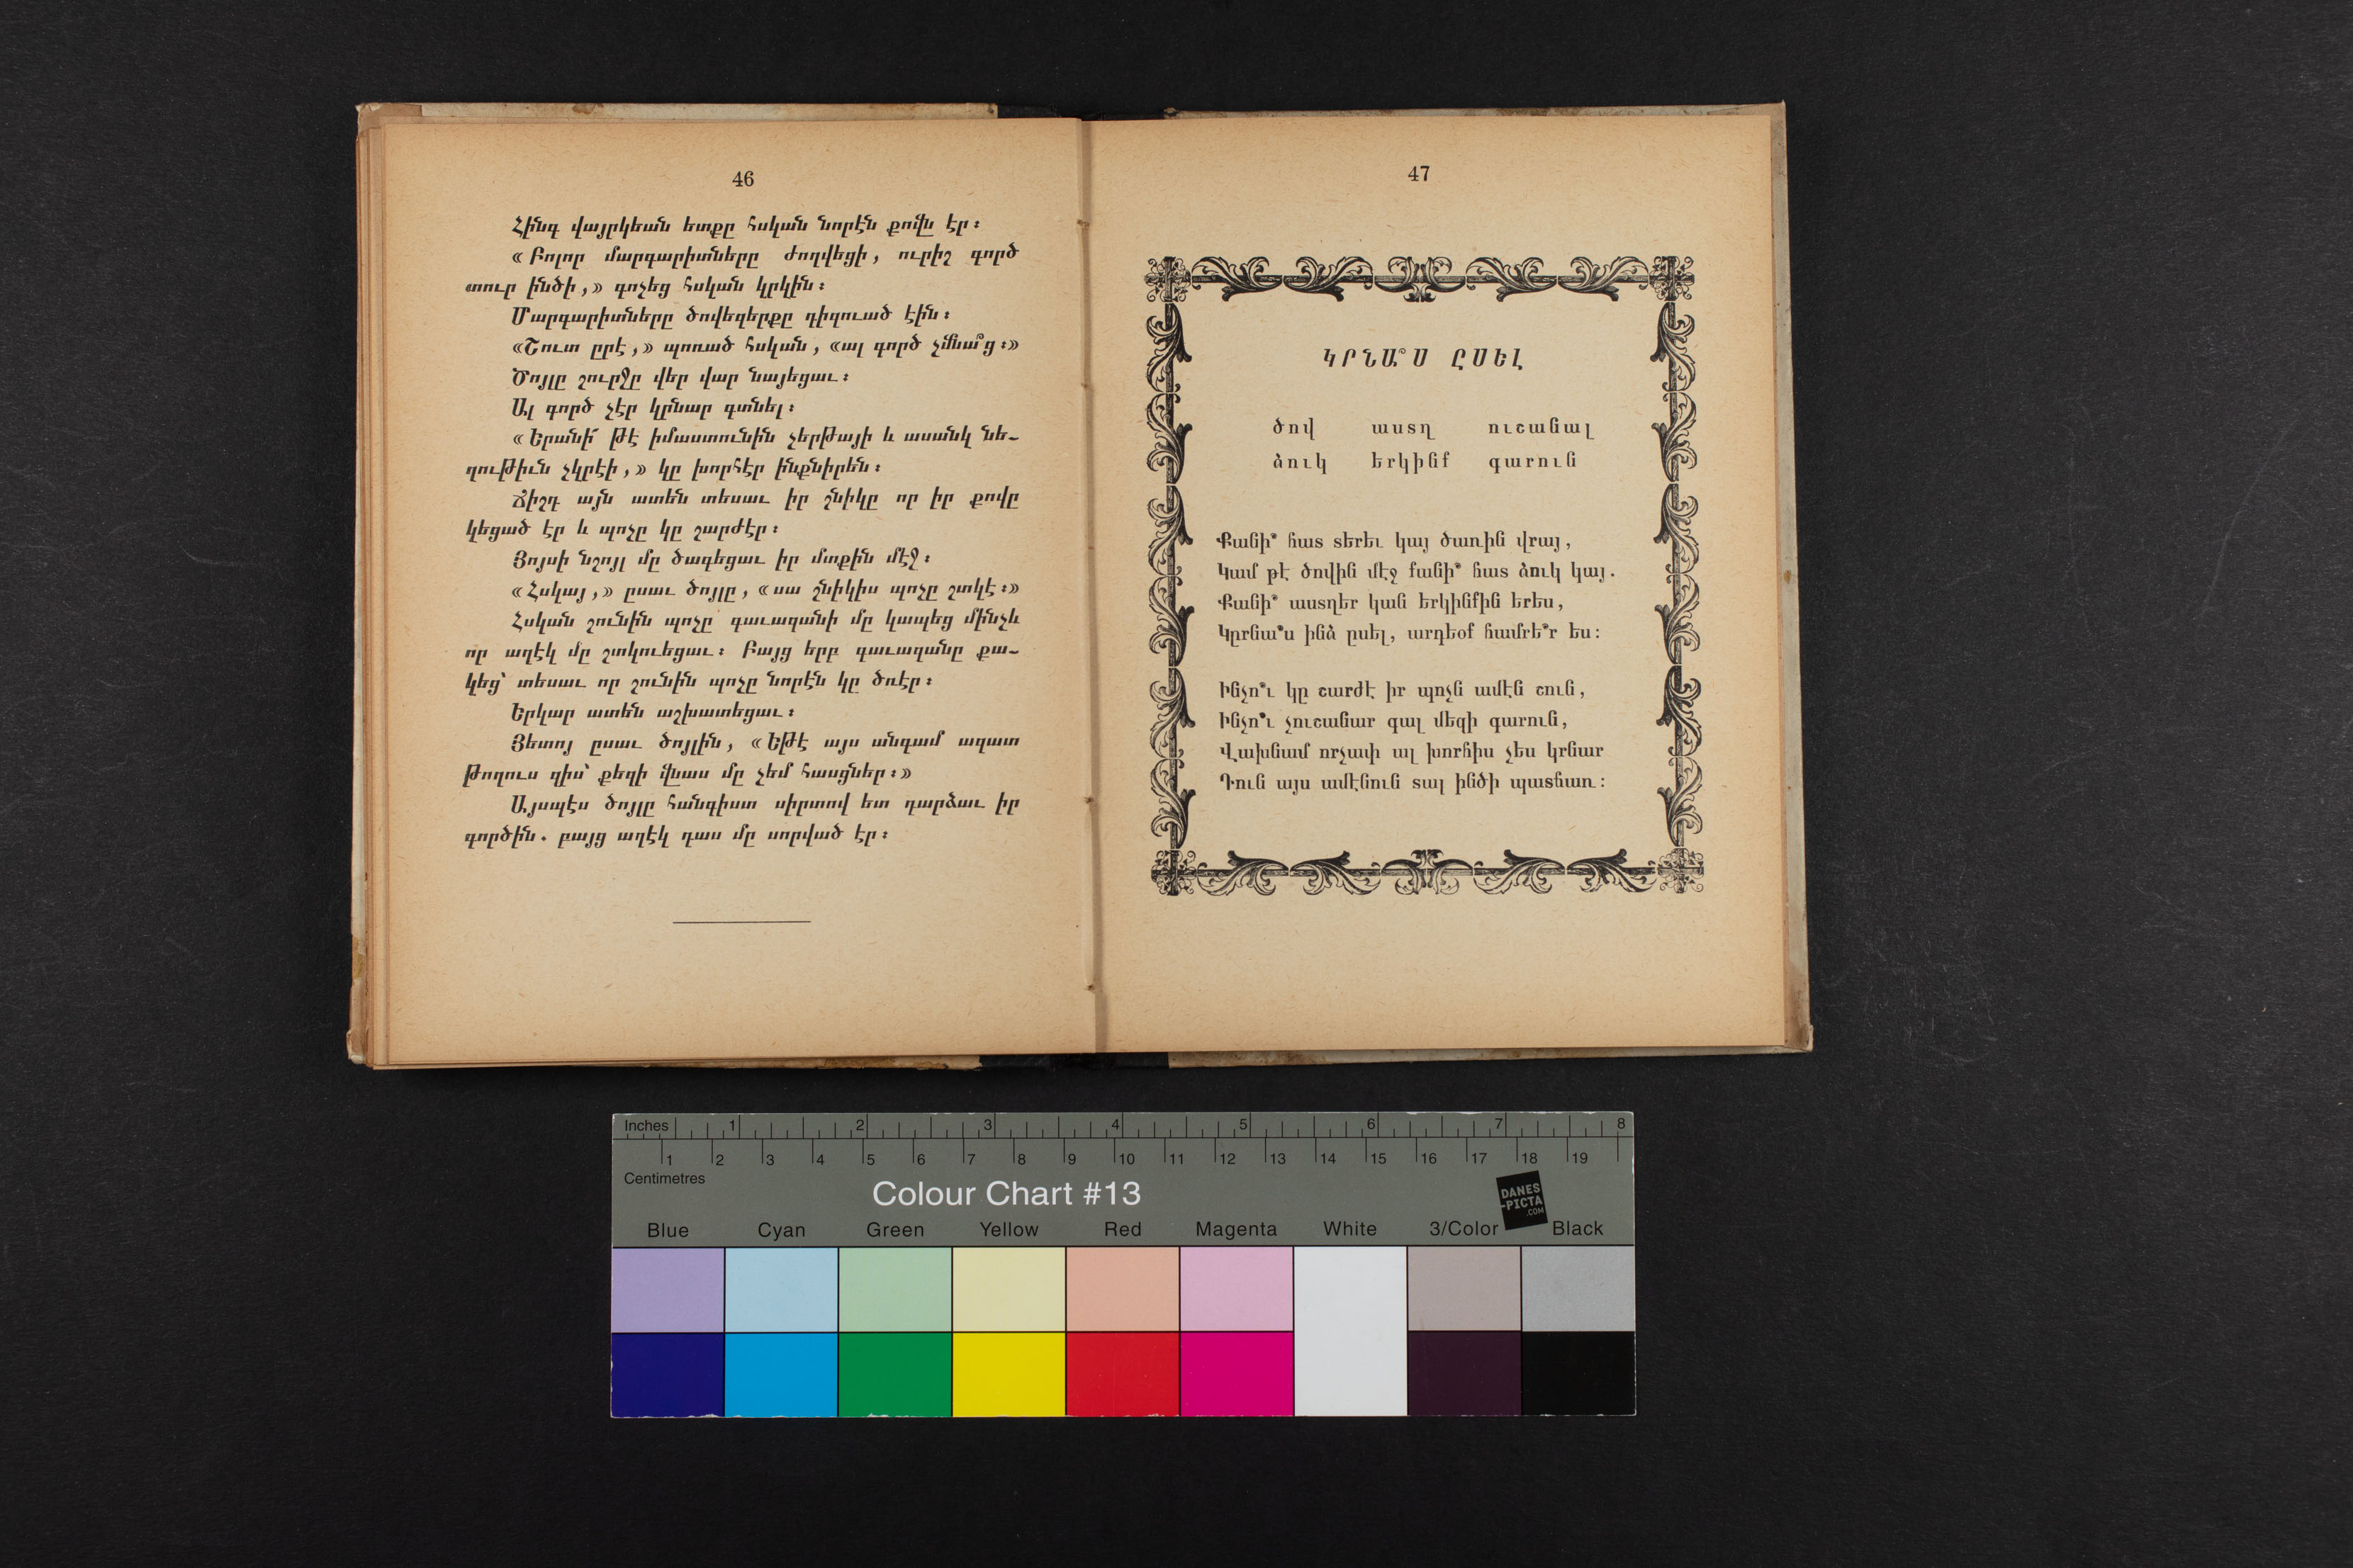 46
Հինգ վայրկեան ետքը հսկան նորէն քովն էր։
«Բոլոր մարգարիտները ժողվեցի, ուրիշ գործ
տուր ինծի,» գոչեց հսկան կրկին։
Մարգարիտները ծովեզերքը դիզուած էին։
«Շուտ ըրէ,» պոռած հսկան, «ալ գործ չմնա՞ց։»
Ծոյլը շուրջը վեր վար նայեցաւ։
Ալ գործ չէր կրնար գտնել։
«Երանի՜ թէ իմաստունին չերթայի և ասանկ նե-
ղութիւն չկրէի,» կը խորհէր ինքնիրեն։
Ճիշդ այն ատեն տեսաւ իր շնիկը որ իր քովը
կեցած էր և պոչը կը շարժէր։
Յոյսի նշոյլ մը ծագեցաւ իր մտքին մէջ։
«Հսկայ,» ըսաւ ծոյլը, «սա շնիկիս պոչը շտկէ։»
Հսկան շունին պոչը գաւազանի մը կապեց մինչև
որ աղէկ մը շտկուեցաւ։ Բայց երբ գաւազանը քա-
կեց՝ տեսաւ որ շունին պոչը նորէն կը ծռէր։
Երկար ատեն աշխատեցաւ։
Յետոյ ըսաւ ծոյլին, «Եթէ այս անգամ ազատ
թողուս զիս՝ քեզի վնաս մը չեմ հասցներ։»
Այսպէս ծոյլը հանգիստ սիրտով ետ դարձաւ իր
գործին. բայց աղէկ դաս մը սորված էր։
47
ԿՐՆԱ՞Ս ԸՍԵԼ
ծով աստղ ուշանալ
ձուկ երկինք գարուն
Քանի՞ հատ տերեւ կայ ծառին վրայ,
Կամ թէ ծովին մէջ քանի՞ հատ ձուկ կայ.
Քանի՞ աստղեր կան երկինքին երես,
Կըրնա՞ս ինձ ըսել, արդեօք համրե՞ր ես։
Ինչո՞ւ կը շարժէ իր պոչն ամէն շուն,
Ինչո՞ւ չուշանար գալ մեզի գարուն,
Վախնամ որչափ ալ խորհիս չես կրնար
Դուն այս ամէնուն տալ ինծի պատճառ։
Inches 1 2 3 4 5 6 7 8
1 2 3 4 5 6 7 8 9 10 11 12 13 14 15 16 17 18 19
Centimetres
Colour Chart #13
DANES
-PICTA
.COM
Blue Cyan Green Yellow Red Magenta White 3/Color Black